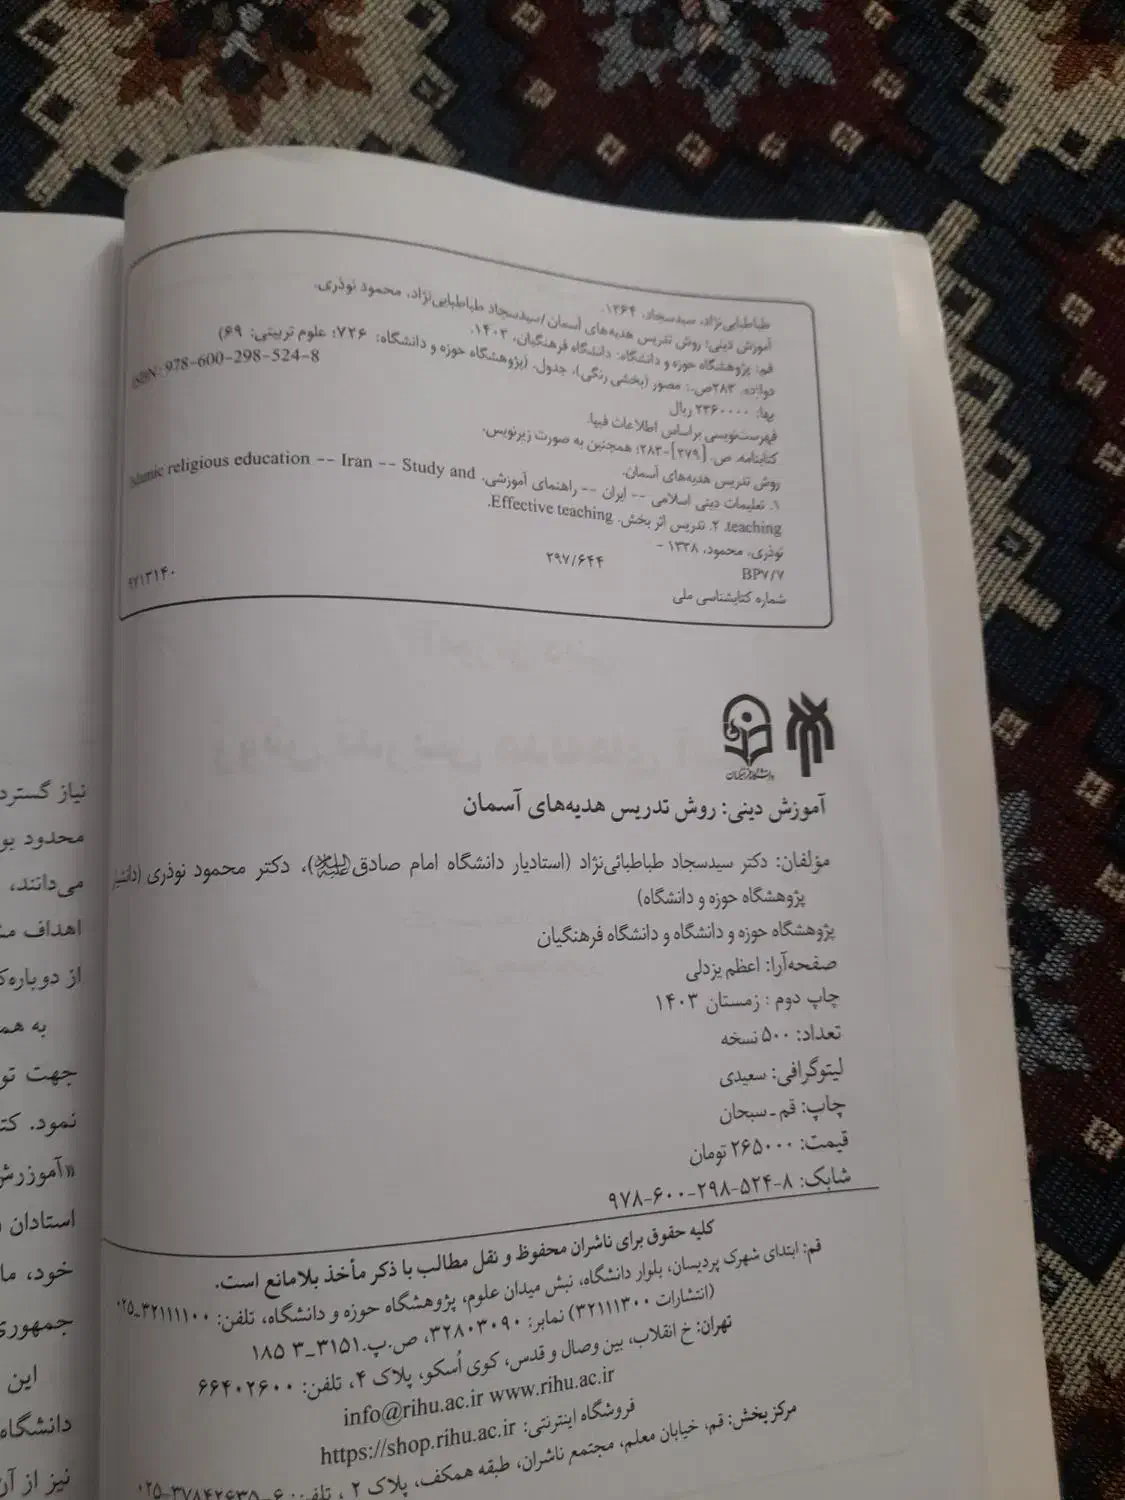 طباطبایی‌نژاد، سیدسجاد، ۱۳۶۴.
آموزش دینی: روش تدریس هدیه‌های آسمان/سیدسجاد طباطبایی‌نژاد، محمود نوذری.
قم: پژوهشگاه حوزه و دانشگاه: دانشگاه فرهنگیان، ۱۴۰۳.
دوازده، ۲۸۳ص.: مصور (بخشی رنگی)، جدول. (پژوهشگاه حوزه و دانشگاه: ۷۲۶؛ علوم تربیتی: ۶۹)
بها: ۲۳۶۰۰۰۰ ریال ISBN: 978-600-298-524-8
فهرست‌نویسی براساس اطلاعات فیپا.
کتابنامه. ص. [۲۷۹]-۲۸۳؛ همچنین به صورت زیرنویس.
روش تدریس هدیه‌های آسمان.
۱. تعلیمات دینی اسلامی -- ایران -- راهنمای آموزشی. Islamic religious education -- Iran -- Study and
teaching. ۲. تدریس اثر بخش. Effective teaching.
نوذری، محمود، ۱۳۳۸ -
BP۷/۷ ۲۹۷/۶۴۴
شماره کتابشناسی ملی ۹۷۱۳۱۴۰
دانشگاه فرهنگیان
آموزش دینی: روش تدریس هدیه‌های آسمان
مؤلفان: دکتر سیدسجاد طباطبائی‌نژاد (استادیار دانشگاه امام صادق علیه‌السلام)، دکتر محمود نوذری (دانشیار
پژوهشگاه حوزه و دانشگاه)
پژوهشگاه حوزه و دانشگاه و دانشگاه فرهنگیان
صفحه‌آرا: اعظم یزدلی
چاپ دوم : زمستان ۱۴۰۳
تعداد: ۵۰۰ نسخه
لیتوگرافی: سعیدی
چاپ: قم ـ سبحان
قیمت: ۲۶۵۰۰۰ تومان
شابک: ۸-۵۲۴-۲۹۸-۶۰۰-۹۷۸
کلیه حقوق برای ناشران محفوظ و نقل مطالب با ذکر مأخذ بلامانع است.
قم: ابتدای شهرک پردیسان، بلوار دانشگاه، نبش میدان علوم، پژوهشگاه حوزه و دانشگاه، تلفن: ۳۲۱۱۱۱۰۰ـ۰۲۵
(انتشارات ۳۲۱۱۱۳۰۰) نمابر: ۳۲۸۰۳۰۹۰، ص.پ.۳۱۵۱ـ۳ ۱۸۵
تهران: خ انقلاب، بین وصال و قدس، کوی اُسکو، پلاک ۴، تلفن: ۶۶۴۰۲۶۰۰
info@rihu.ac.ir www.rihu.ac.ir
فروشگاه اینترنتی: https://shop.rihu.ac.ir
مرکز پخش: قم، خیابان معلم، مجتمع ناشران، طبقه همکف، پلاک ۲ ، تلفن: ۶-۳۷۸۴۲۶۳۵-۰۲۵
نیاز
محدود
می‌دانند،
اهداف
از
به
جهت
نمود.
«آموزش
استادان
خود،
جمهوری
این
دانشگاه
نیز از